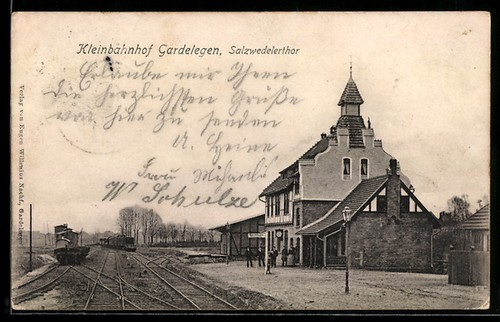 Kleinbahnhof Gardelegen, Salzwedelerthor
Erlaube mir Ihnen
die herzlichsten Grüße
von hier zu senden
A. Heine
Frau
W Schulze
Verlag von Eugen Willenius Nachf., Gardelegen